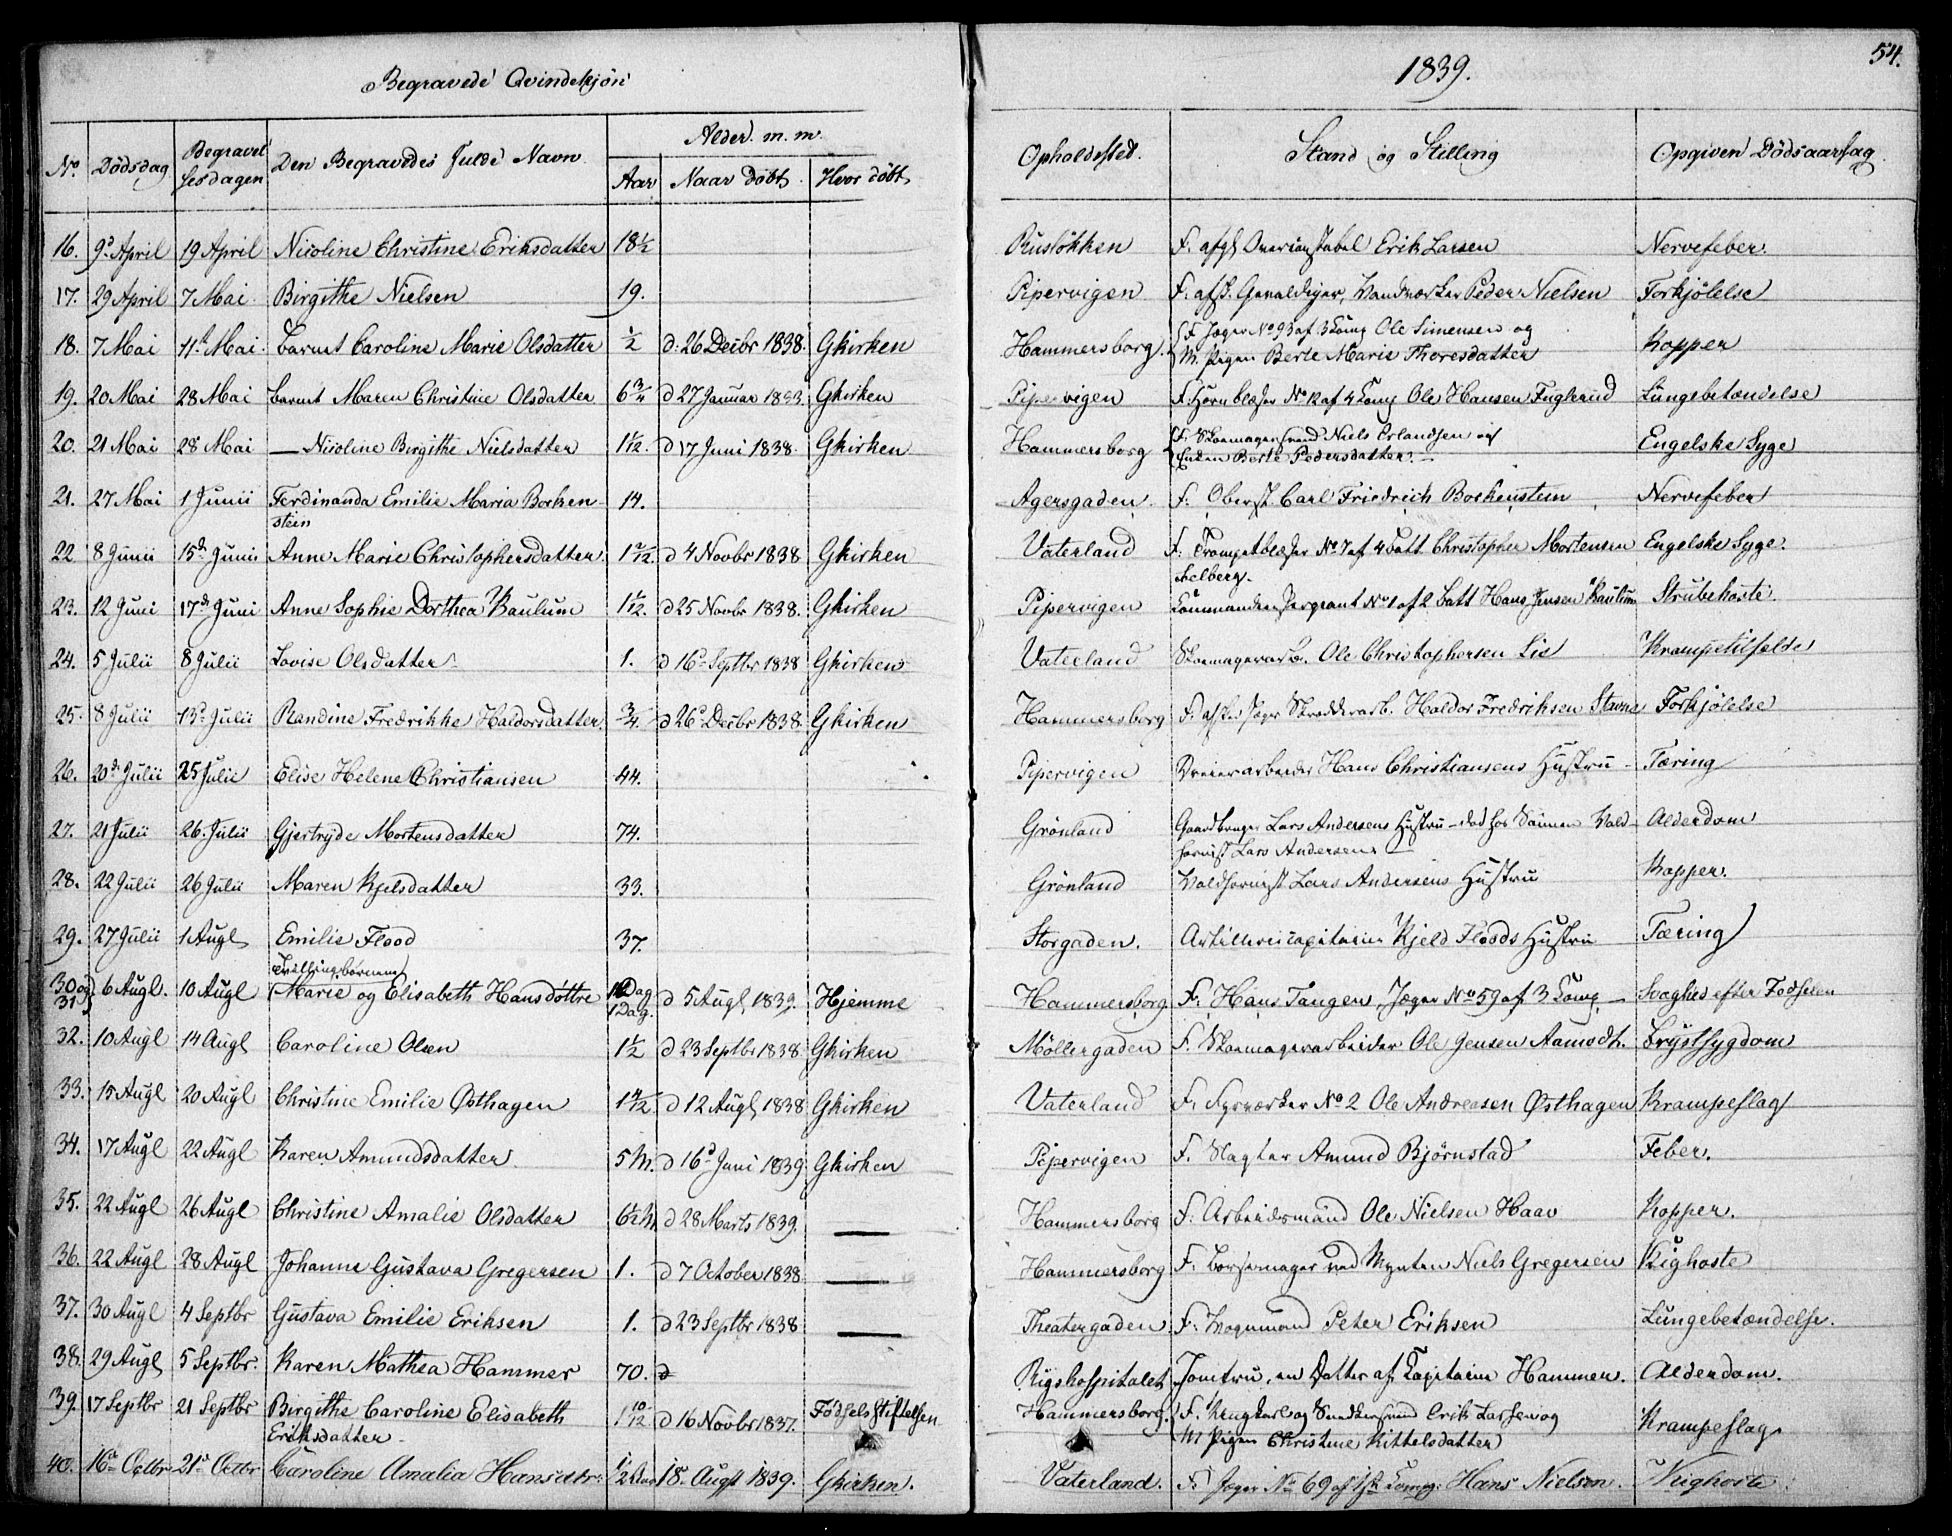 54.
Begravede Qvindekjön
1839.
No. Dödsdag Begravelsesdagen Den Begravedes fulde Navn Alder m. m. Opholdssted. Stand og Stilling Opgiven Dödsaarsag
Aar Naar döbt. Hvor döbt
16. 9d April 19 April Nicoline Christine Eriksdatter 18 1/2 Rusløkken F. Erik Larsen Nervefeber.
17. 29 April 7 Mai Birgithe Nielsen 19. Pipervigen F. afsk. Gevaldiger, Vandværker Peder Nielsen Forkjölelse
18. 7 Mai 11te Mai. Barnet Caroline Marie Olsdatter 1/2 d: 26 Decbr 1838. Gkirken Hammersborg. F. Jæger No 93 af 3 Comp Ole Simensen og
M. Pigen Berte Marie Thoresdatter Kopper
19. 20 Mai 28 Mai Barnet Maren Christine Olsdatter 6 3/4 d 27 Januar 1833. Gkirken Pipervigen F. Hornblæser No 12 af 4 Comp Ole Hansen Fuglerud Lungebetændelse
20. 21 Mai 28 Mai — Nicoline Birgithe Nielsdatter 1 1/12. d 17 Juni 1838. Gkirken Hammersborg F. Skomagersvend Niels Erlandsen og
Berte Pedersdatter. — Engelske Syge
21. 27 Mai 1 Junii Ferdinanda Emilie Maria Bocken- 14. Agersgaden. F. Oberst Carl Friedrich Bockenstein Nervefeber
stein
22 8 Junii 15de Junii Anne Marie Christophersdatter. 1 2/12. d 4 Novbr 1838 Gkirken Vaterland F. Trompetblæser No 7 af 4 Batt. Christopher Mortensen Engelske Syge.
Selberg.
23. 12 Juni 17de Juni Anne Sophie Dorthea Kaulum 1 1/12. d 25 Novbr 1838. Gkirken Pipervigen Commandeersergeant No 1 af 2 Batt Hans Jensen Kaulum Strubehoste.
24. 5 Julii 8 Julii Lovise Olsdatter 1. d 16d Septbr 1838 Gkirken Vaterland Skomagerarb. Ole Christophersen Lie Krampetilfelde
25. 8 Julii 13d Julii Randine Fredrikke Haldorsdatter. 3/4. d 26d Decbr 1838. Gkirken Hammersborg F. Jæger Skredderarb. Haldor Fredriksen Stavne Forkjölelse
26. 20de Julii 25 Julii Elise Helene Christiansen 44. Pipervigen Dreierarbeider Hans Christiansens Hustru — Tæring
27. 21 Julii 26. Julii Gjertryde Mortensdatter 74. Grönland Gaardbruger Lars Andersens Hustru — död hos Sönnen Vald- Alderdom
hornist Lars Andersen
28. 22 Julii 26 Julii Maren Kjelsdatter 33. Grönland Valdhornist Lars Andersens Hustru Kopper.
29. 27 Julii 1 Augl Emilie Flood 37. Storgaden. Artillericapitain Kjeld Floods Hustru Tæring
Tvillingbörnene
30 og 31 6 Augl. 10 Augl Marie og Elisabeth Hansdöttre 1 Dag 1 Dag. d 5 Augl 1839. Hjemme Hammersborg F. Hans Tangen, Jæger No 59 af 3 Comp — Svaghed efter Fødselen
32. 10 Augl 14 Augl Caroline Olsen 1 1/2 d 23 Septbr 1838 Gkirken Möllergaden F. Skomagerarbeider Ole Jensen Aamodt. Brystsygdom
33. 15 Augl 20 Augl Christine Emilie Østhagen 1 4/12 d 12 Augl 1838 Gkirken Vaterland F. Fyrværker No 2 Ole Andreasen Østhagen Krampeslag
34. 17 Augl 22 Augl Karen Amundsdatter. 5 M. d 16d Juni 1839 Gkirken Pipervigen F. Slagter Amund Björnstad Feber.
35. 22 Augl 26 Augl Christine Amalie Olsdatter 6 1/2 M. d 28 Marts 1839. — Hammersborg F. Arbeidsmand Ole Nielsen Haav Kopper.
36. 22 Augl 28 Augl Johanne Gustava Gregersen 1. d 7 October 1838 — Hammersborg F. Börsemager ved Mynten Niels Gregersen Kighoste
37. 30 Augl 4 Septbr Gustava Emilie Eriksen 1. d 23 Septbr 1838 — Theatergaden F. Vognmand Peter Eriksen Lungebetændelse.
38. 29 Augl 5 Septbr. Karen Mathea Hammer 70. d Rigshospitalet Jomfru, en Datter af Capitaine Hammer. Alderdom.
39. 17 Septbr 21 Septbr Birgithe Caroline Elisabeth 1 10/12 d 16 Novbr 1837. Födselsstiftelsen Hammersborg. F. Erik Larsen og
Eriksdatter. M Pigen Christine Kittelsdatter Krampeslag
40. 16de Octbr 21de Octbr Caroline Amalia Hansdtr. 18. Augst 1839. Gkirken. Vaterland. F. Jæger No 69 af 1ste Comp: Hans Nielsen. Kighoste